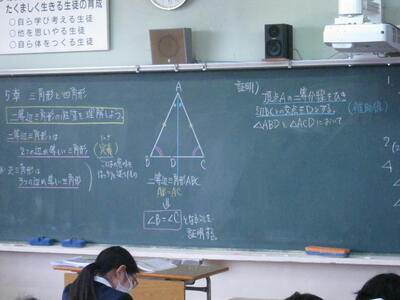 たくましく生きる生徒の育成
○自ら学び考える生徒
○他を思いやる生徒
○自ら体をつくる生徒
5章 三角形と四角形
二等辺三角形の性質を理解しよう。
二等辺三角形とは
2つの辺が等しい三角形
(定義)
ことばの意味を
はっきり述べたもの
正三角形は
3つの辺が等しい三角形
A
B D C
二等辺三角形ABC
AB=AC
∠B=∠Cとなることを
証明する。
証明)
頂点Aの二等分線をひき
辺BCとの交点をDとする。(補助線)
△ABDと△ACDにおいて